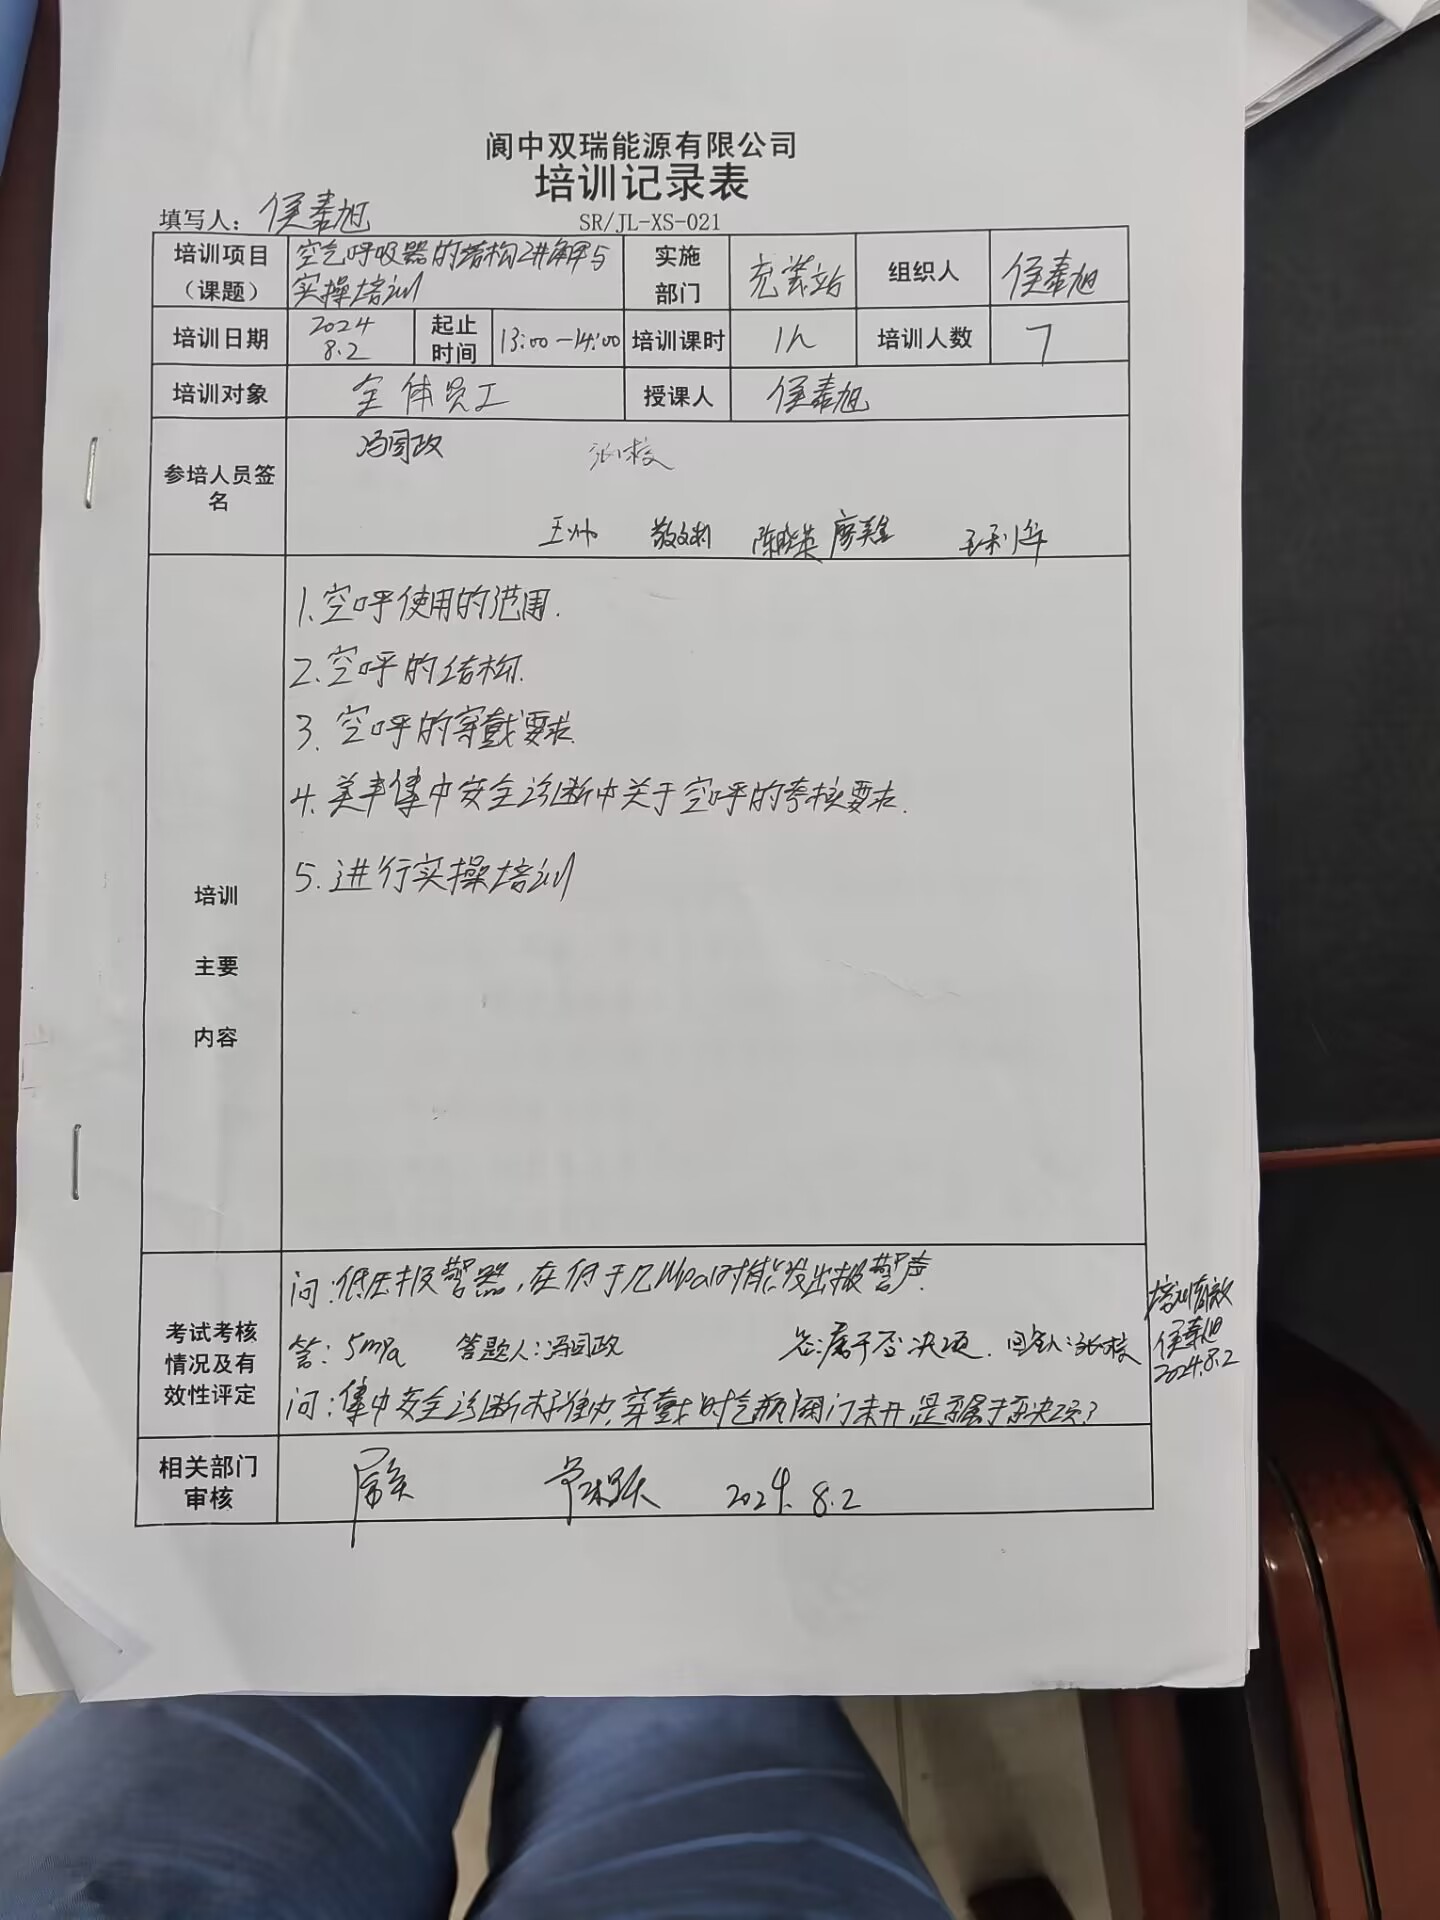 阆中双瑞能源有限公司
培训记录表
填写人：侯泰旭
SR/JL-XS-021
培训项目（课题） 空气呼吸器的结构讲解与实操培训 实施部门 充装站 组织人 侯泰旭
培训日期 2024 8.2 起止时间 13:00-14:00 培训课时 1h 培训人数 7
培训对象 全体员工 授课人 侯泰旭
参培人员签名
冯国政 张校
王帅 陈晓英
培训主要内容
1.空呼使用的范围.
2.空呼的结构.
3.空呼的穿戴要求.
4.美丰集中安全诊断中关于空呼的考核要求.
5.进行实操培训
考试考核情况及有效性评定
问:低压报警器,在低于几Mpa时能发出报警声.
答:5mpa 答题人:冯国政
答:属于否决项. 回答人:张校
问:集中安全诊断标准中,穿戴时气瓶阀门未开,是否属于否决项?
培训有效
侯泰旭
2024.8.2
相关部门审核 2024.8.2